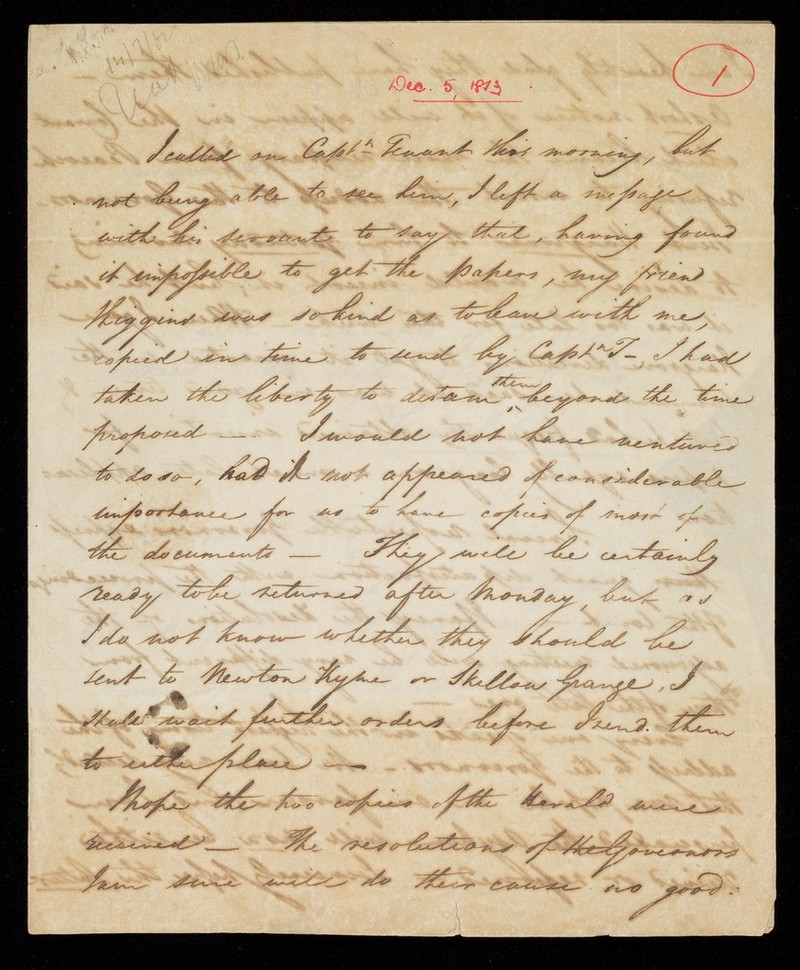 Dec. 5, 1813
1
I called on Captn Tennant this morning, but
not being able to see him, I left a message
with his servant to say that, having found
it impossible to get the papers, my friend
Higgins was so kind as to leave with me,
copied in time to send by Captn T— I had
taken the liberty to detain them beyond the time
proposed —. I would not have ventured
to do so, had it not appeared of considerable
importance for us to have copies of most of
the documents — They will be certainly
ready to be returned after Monday, but as
I do not know whether they should be
sent to Newton Kyme or Skellow Grange, I
shall wait further orders before I send them
to either place —
I hope the two copies of the Herald were
received — The resolutions of the Governors
I am sure will do their cause no good.